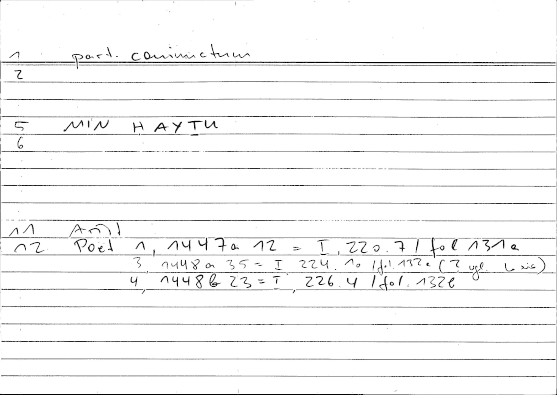 1 part. coniunctum
2
5 MIN HAYTU
6
11 Arist
12 Poet 1, 1447a 12 = I, 220.7 / fol 131a
3, 1448a 35 = I 224.10 / fol. 132a (? vgl.
4, 1448b 23 = I, 226.4 / fol. 132b